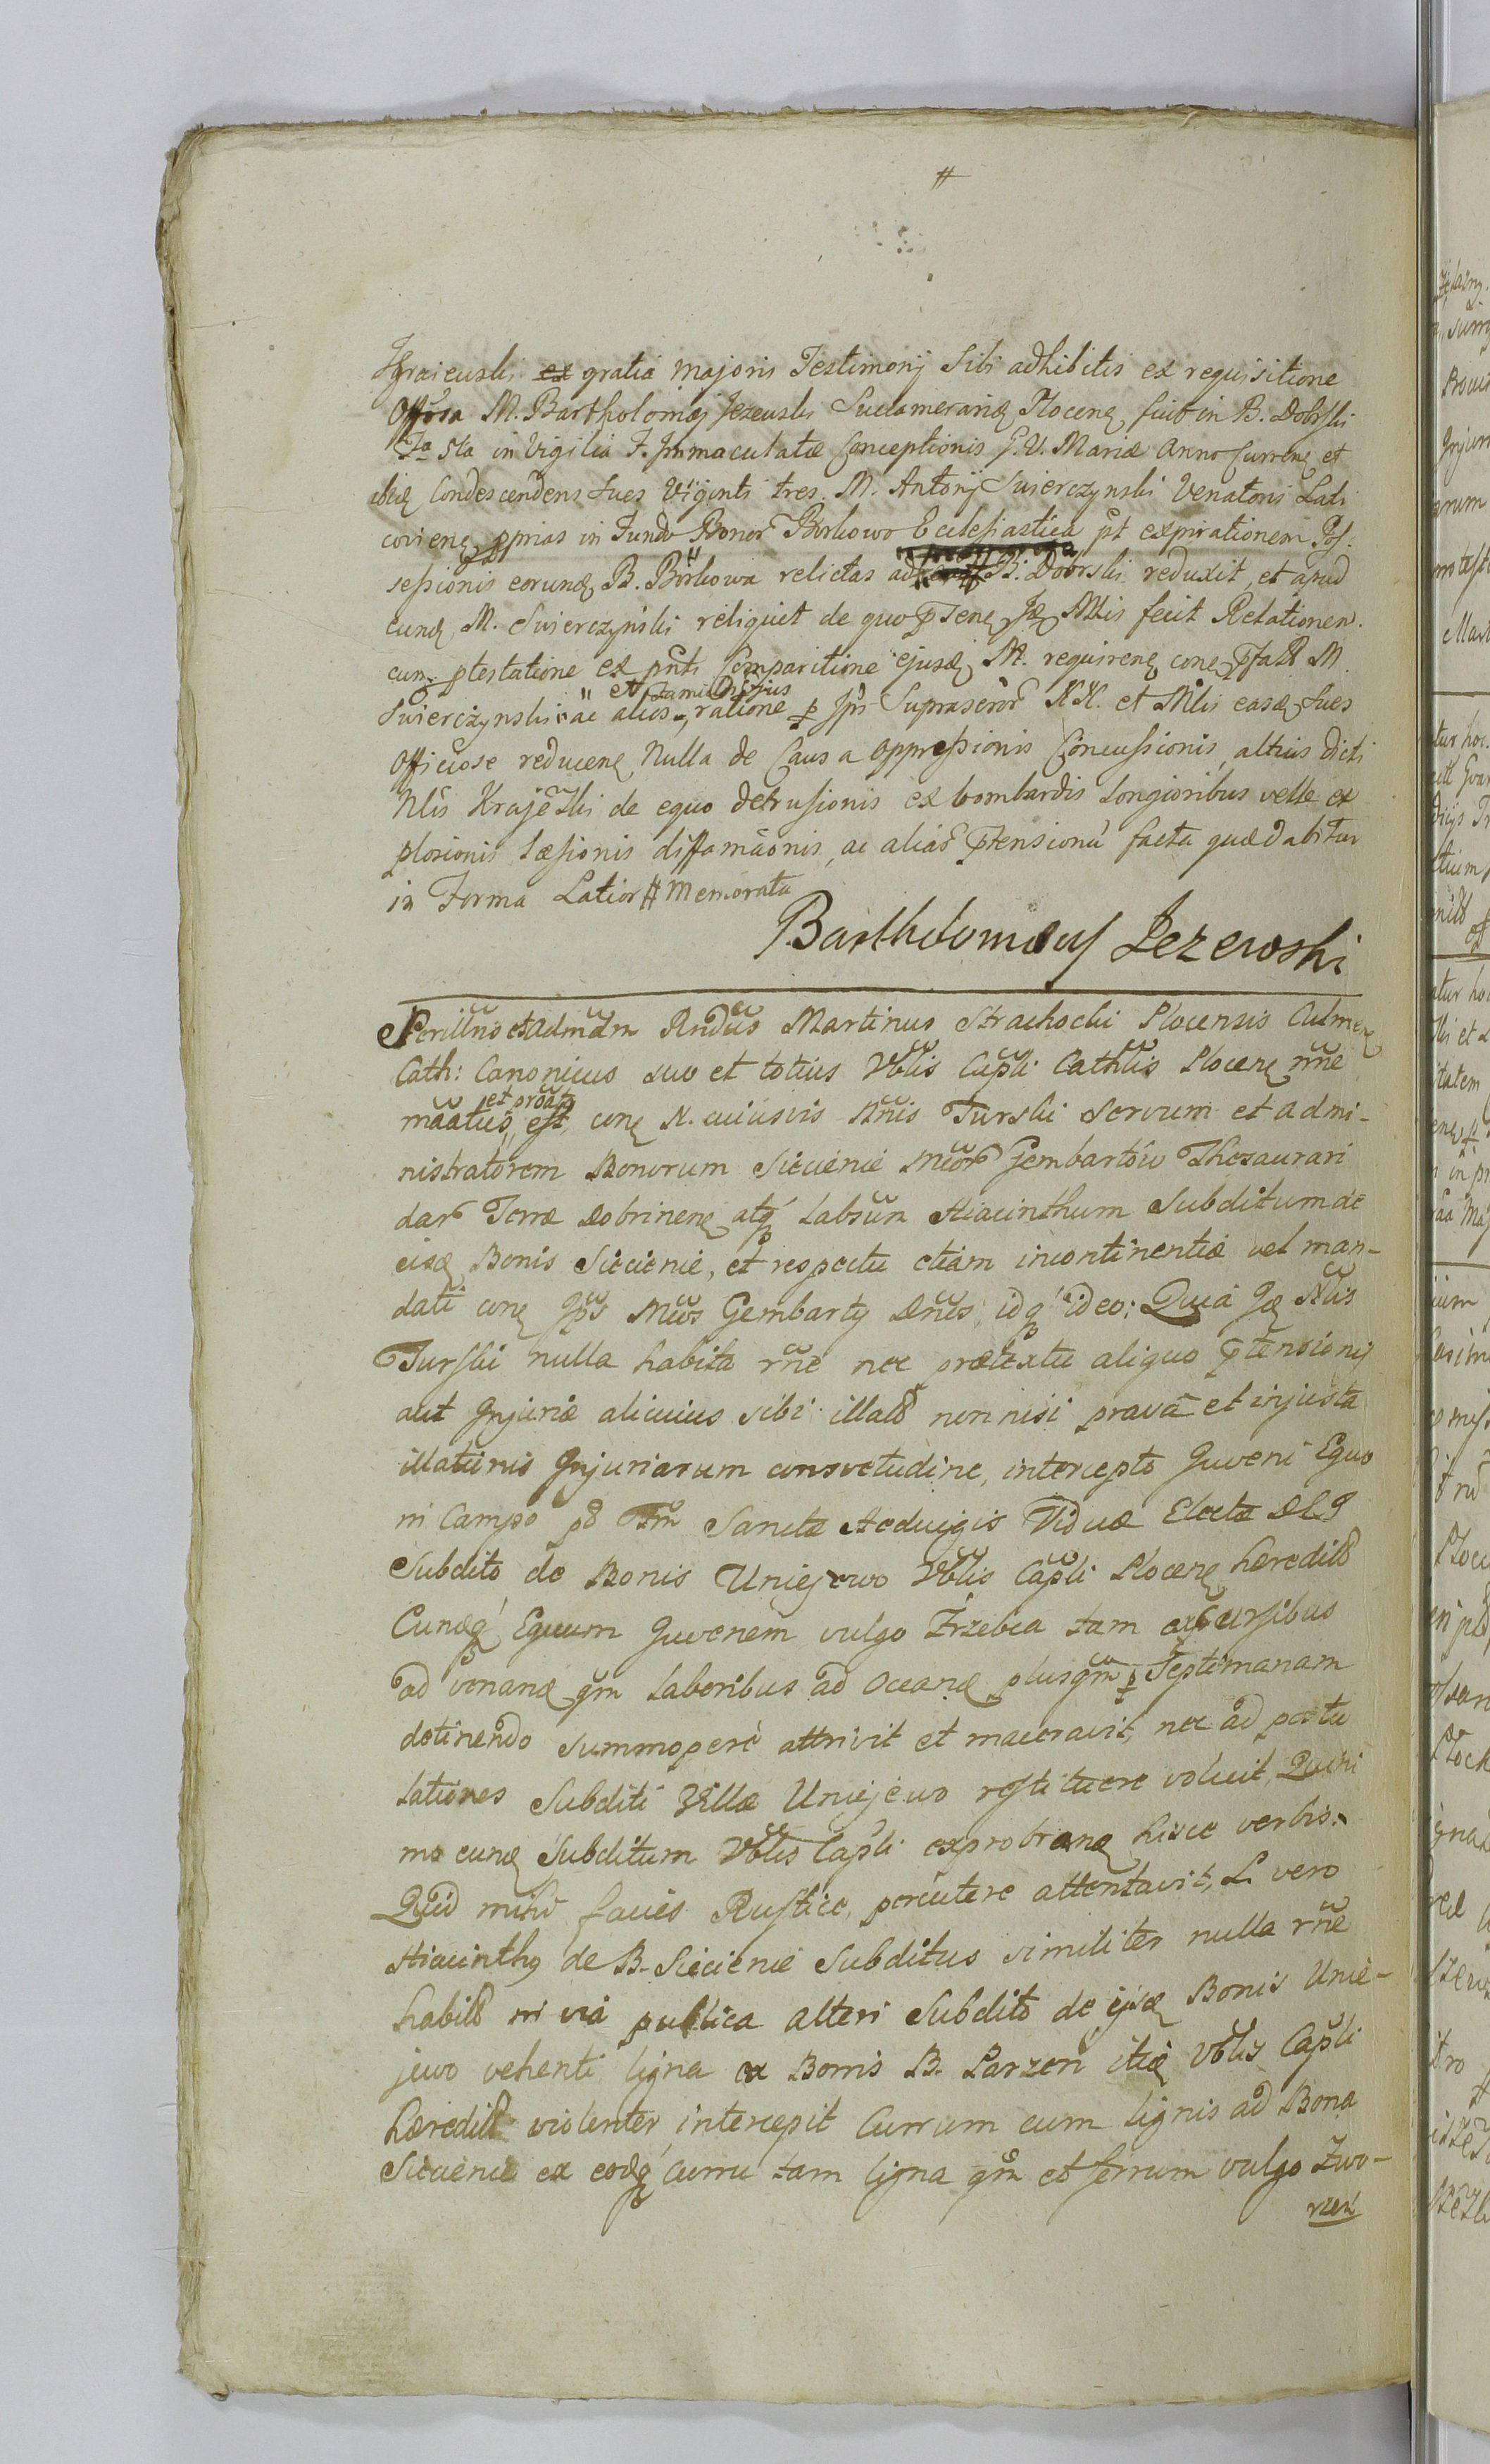 #
Kraiewski ex gratia majoris Testimonij Sibi adhibitis ex requisitione
Offosa M. Bartholomæj Jezewski Succamerariæ Plocen, fuit in B. Dobrski
Fa 5ta in Vigilia F. Immaculatæ Conceptionis G. V. Mariæ Anno Curren et
ibiæ Condescendens sues Viginti tres M. Antonij Swierczynski Venatoris Lati
covien pprias in Fundo Bonor Borkowo Ecclesiastica pt expirationem Pos
sessionis eorund B. Borkowa relictas ad B. Dobrski reduxit, et apud
eund M. Swierczynski reliquit de quo psens Ja Nblis fecit Relationem.
cum ptestatione ex pnti Comparitione ejusd M. requiren con pfatt M
et Famil Ejus
Swierczynski ac alios ratione p Jps Suprascror NN. et Nblis easd sues
Officiose reducen Nulla de Causa oppressionis Concussionis, altius dicti
Nlis Krajeski de equo detrusionis ex bombardis longioribus velle ex
plosionis læsionis diffamaonis, ac aliar ptensionu facta quæ dabitur
in Forma Latior # memorata
Bartholomæus Jezewski
Perillris et Admdm Rndus Martinus Strachocki Plocensis Culmen
Cath: Canonicus suo et totius Vblis Capli Cathlis Plocen nne
et proatq
maatus est con N. cuiusvis Nnis Turski servum et admi-
nistratorem Bonorum Siecienie Mcor Gembartow Thesaurari
dar Terræ Dobrinen atq Labsum Hiacinthum Subditum de
eisd Bonis Siecienie, et respectu etiam incontinentiæ vel man-
dati con Jps Mcos Gembarty Dnos, idq ideo; Quia Ja Nlis
Turski nulla habita rne nec prætextu aliquo ptensionis
aut Injuriæ alicuius sibi illatt non nisi prava et injusta
illationis Injuriarum consvetudine, intercepto Juveni Equo
in Campo pt Fm Sanctæ Heduigis Viduæ Electæ
Subdito de Bonis Uniejewo Vblis Capli Plocen hæreditt
Eundq Equum Juvenem vulgo Zrzebca tam excursibus
ad venand qm laboribus ad Occand plusqm p Septimanam
detinendo summopere attrivit et maceravit, nec ad postu
lationes Subditi Villæ Uniejewo restituere voluit, Quini
mo eund Subditum Vblis Capli exprobrand hisce verbis:
Quid mihi facies Rustice, percutere attentavit, L. vero
Hiacinthus de B. Siecienie Subditus similiter nulla rne
habitt in via publica alteri Subdito de ijsd Bonis Unie-
jewo vehenti ligna ex Bonis B. Parzen itid Vblis Capli
hæreditt violenter intercepit Currum cum lignis ad Bona
Siecienie ex eodq curru tam ligna qm et ferrum vulgo Zwo-
rzen